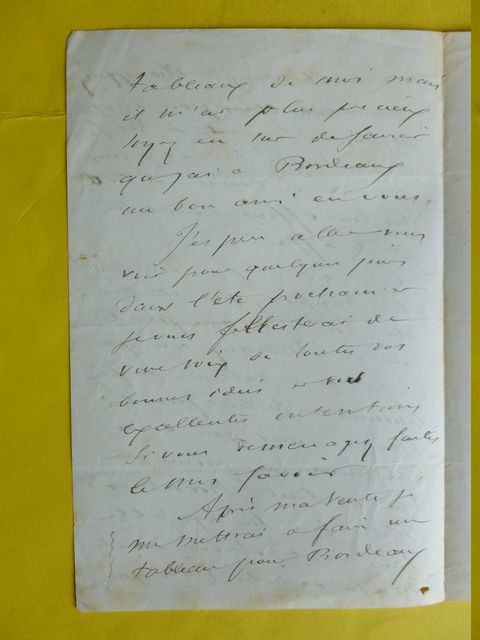 tableaux de moi mais
il m'est plus précieux
soyez en sur de savoir
que j'ai a Bordeaux
un bon ami en vous.
J'espere aller vous
voir pour quelques jours
dans l'été prochain et
je vous feliciterai de
vive voix de toutes vos
bonnes idées et vos
exellentes intentions
Si vous demenagez faites
le moi savoir
Après ma vente je
me mettrai a faire un
tableau pour Bordeaux